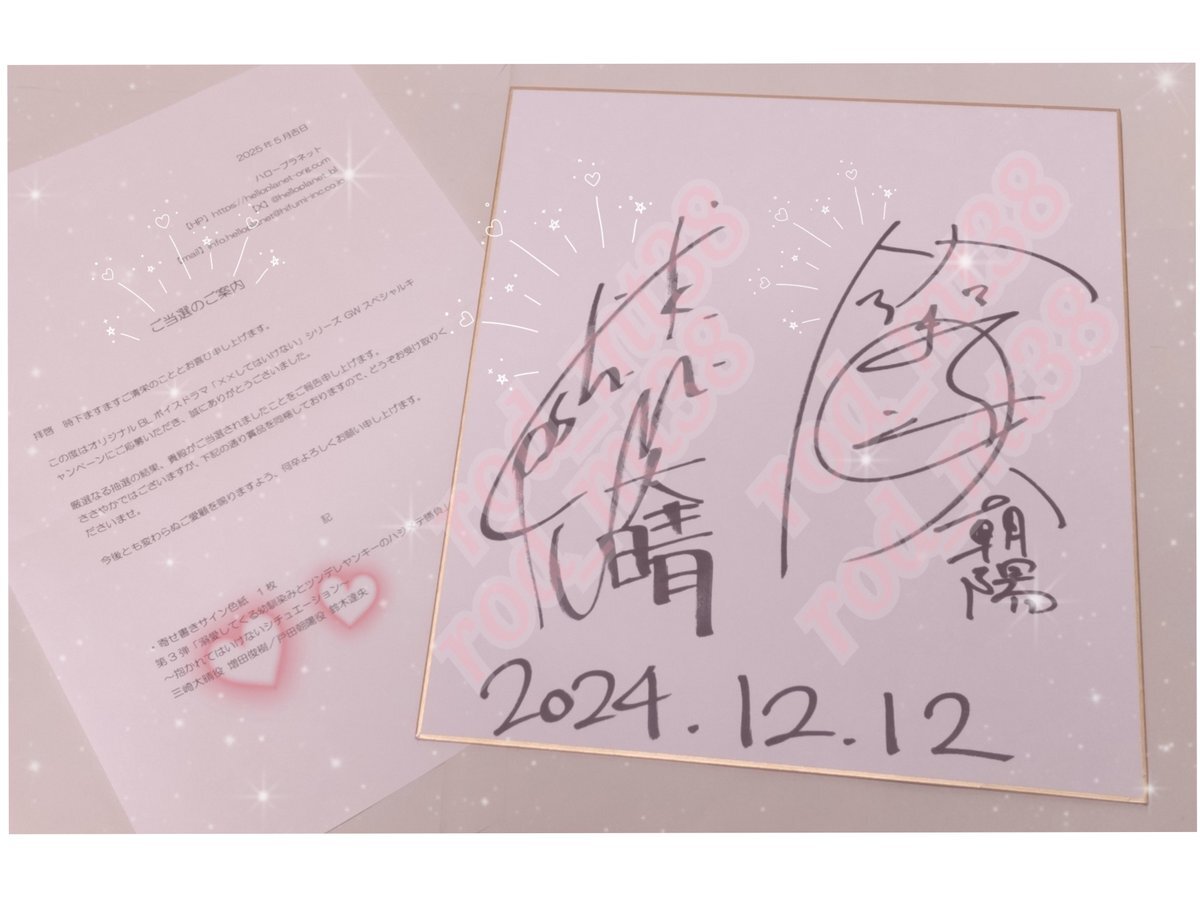 2025年5月吉日
ハロープラネット
【HP】https://helloplanet-org.com
【X】@helloplanet_bl
【mail】info.helloplanet@hifumi-inc.co.jp
ご当選のご案内
拝啓 時下ますますご清栄のこととお喜び申し上げます。
この度はオリジナルBLボイスドラマ「××してはいけない」シリーズ GWスペシャルキ
ャンペーンにご応募いただき、誠にありがとうございました。
厳選なる抽選の結果、貴殿がご当選されましたことをご報告申し上げます。
ささやかではございますが、下記の通り賞品を同梱しておりますので、どうぞお受け取りく
ださいませ。
今後とも変わらぬご愛顧を賜りますよう、何卒よろしくお願い申し上げます。
記
・寄せ書きサイン色紙 1枚
第3弾「溺愛してくる幼馴染みとツンデレヤンキーのハジメテ
～抱かれてはいけないシチュエーション～
三崎大晴役 増田俊樹／戸田朝陽役 鈴木達央
大晴
朝陽
2024.12.12
rod_mx38
rod_mx38
rod_mx38
rod_mx38